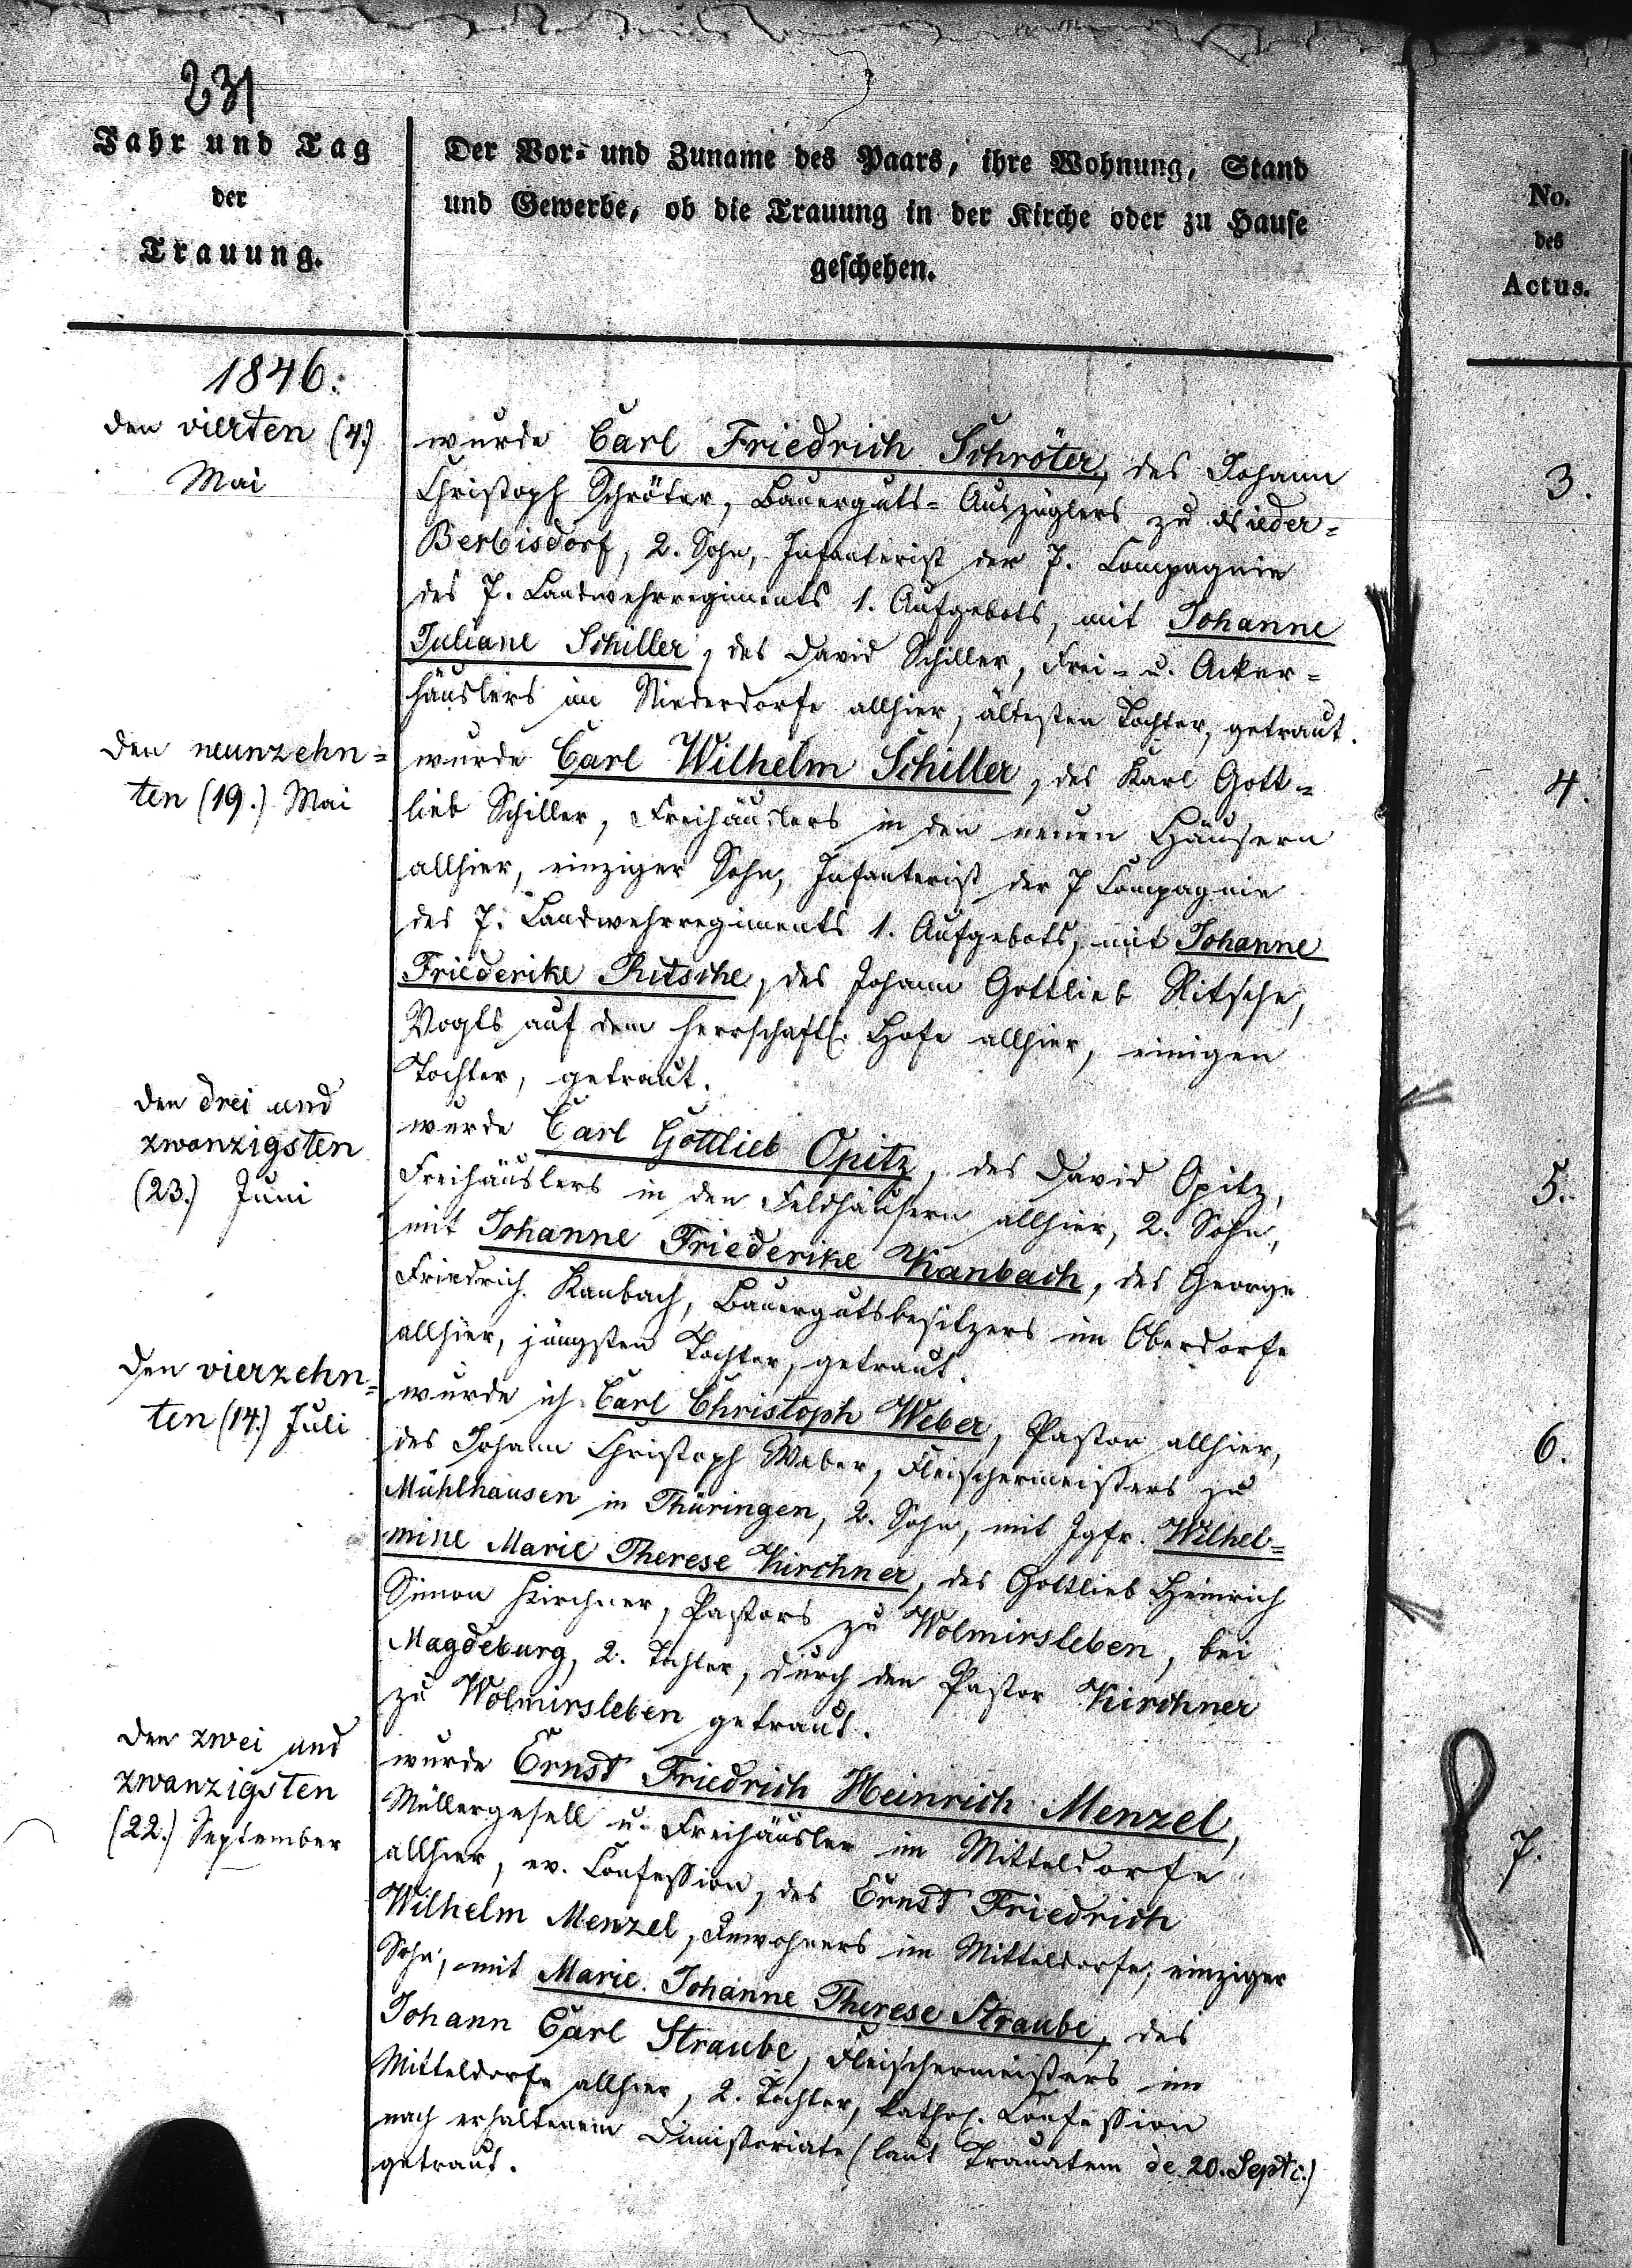 231
Jahr und Tag
der
Trauung.
Der Vor- und Zuname des Paars, ihre Wohnung, Stand
und Gewerbe, ob die Trauung in der Kirche oder zu Hause
geschehen.
No.
des
Actus.
1846.
den vierten (4.)
Mai
wurde Carl Friedrich Schröter, des Johann
Christoph Schröter, Bauerguts-Auszüglers zu Nieder-
Berbisdorf, 2. Sohn, Infanterist der 7. Compagnie
des 7. Landwehrregiments 1. Aufgebots, mit Johanne
Juliane Schiller, des David Schiller, Frei- u. Acker-
häuslers im Niederdorfe allhier, ältesten Tochter, getraut.
3.
den neunzehn-
ten (19.) Mai
wurde Carl Wilhelm Schiller, des Karl Gott-
lieb Schiller, Freihäuslers in den neuen Häusern
allhier, einziger Sohn, Infanterist der 7 Compagnie
des 7. Landwehrregiments 1. Aufgebots, mit Johanne
Friederike Ritsche, des Johann Gottlieb Ritsche,
Vogts auf dem herrschaftl. Hofe allhier, einigen
Tochter, getraut.
4.
den drei und
zwanzigsten
(23.) Juni
wurde Carl Gottlieb Opitz, des David Opitz,
Freihäuslers in den Feldhäusern allhier, 2. Sohn,
mit Johanne Friederike Kanbach, des George
Friedrich Kanbach, Bauergutsbesitzers im Oberdorfe
allhier, jüngsten Tochter, getraut.
5.
den vierzehn-
ten (14.) Juli
wurde ich Carl Christoph Weber, Pastor allhier,
des Johann Christoph Weber, Fleischermeisters zu
Mühlhausen in Thüringen, 2. Sohn, mit Jgfr. Wilhel-
mine Marie Therese Kirchner, des Gottlieb Heinrich
Simon Kirchner, Pastors zu Wolmirsleben, bei
Magdeburg, 2. Tochter, durch den Pastor Kirchner
zu Wolmirsleben getraut.
6.
den zwei und
zwanzigsten
(22.) September
wurde Ernst Friedrich Heinrich Menzel,
Müllergesell u. Freihäusler im Mitteldorfe
allhier, ev. Confession, des Ernst Friedrich
Wilhelm Menzel, Inwohners im Mitteldorfe, einziger
Sohn, mit Marie Johanne Therese Straube, des
Johann Carl Straube, Fleischermeisters im
Mitteldorfe allhier, 2. Tochter, kathol. Confession
nach erhaltenem Dimissoriate (laut de 20. Sept c.)
getraut.
7.